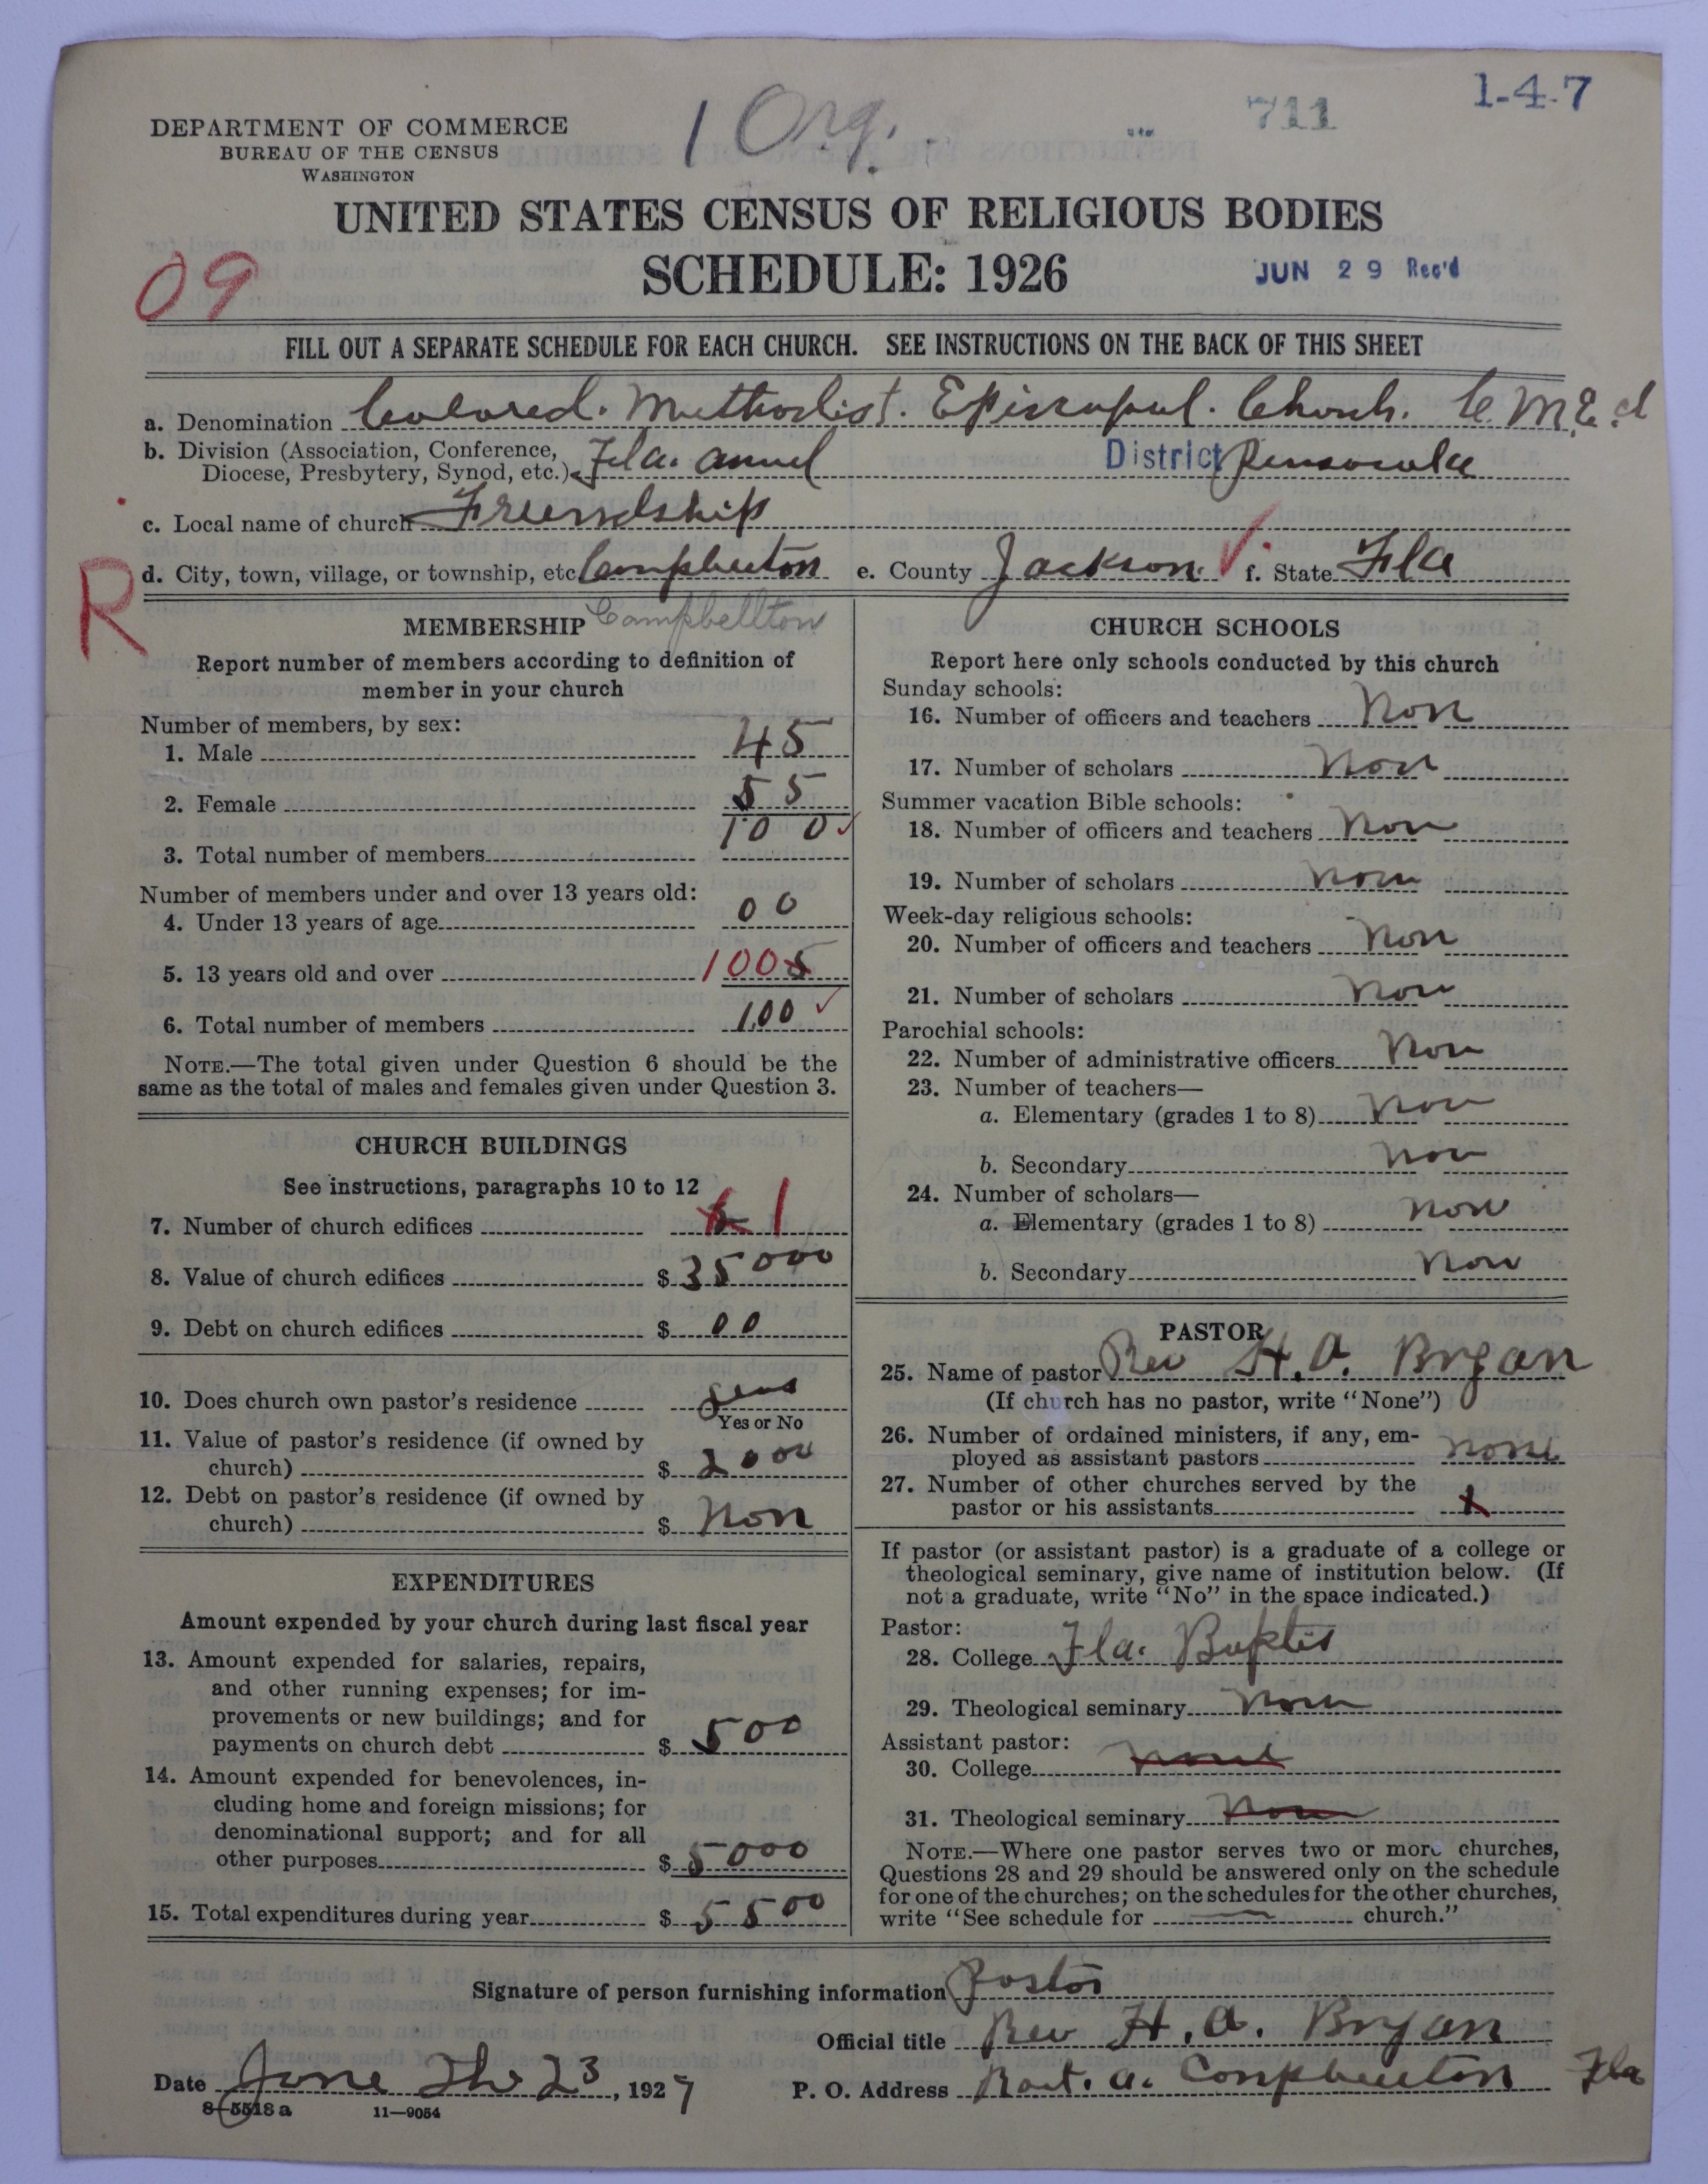 1 Org.
711
1-4-7
DEPARTMENT OF COMMERCE
BUREAU OF THE CENSUS
WASHINGTON
UNITED STATES CENSUS OF RELIGIOUS BODIES
SCHEDULE: 1926
JUN 29 Rec'd
09
FILL OUT A SEPARATE SCHEDULE FOR EACH CHURCH. SEE INSTRUCTIONS ON THE BACK OF THIS SHEET
a. Denomination Colored. Methodist. Episcopal. Church. C.M.E.
b. Division (Association, Conference,
Diocese, Presbytery, Synod, etc.) Fla. annul District Pensacola
c. Local name of church Freindship
R
d. City, town, village, or township, etc. Campbellton e. County Jackson. f. State Fla
Campbellton
MEMBERSHIP
Report number of members according to definition of
member in your church
Number of members, by sex:
1. Male 45
2. Female 55
3. Total number of members 100
Number of members under and over 13 years old:
4. Under 13 years of age 00
5. 13 years old and over 100
6. Total number of members 100
NOTE.—The total given under Question 6 should be the
same as the total of males and females given under Question 3.
CHURCH BUILDINGS
See instructions, paragraphs 10 to 12
7. Number of church edifices 1
8. Value of church edifices $ 35000
9. Debt on church edifices $ 00
10. Does church own pastor's residence
Yes or No
11. Value of pastor's residence (if owned by
church) $ 2000
12. Debt on pastor's residence (if owned by
church) $ Non
EXPENDITURES
Amount expended by your church during last fiscal year
13. Amount expended for salaries, repairs,
and other running expenses; for im-
provements or new buildings; and for
payments on church debt $ 500
14. Amount expended for benevolences, in-
cluding home and foreign missions; for
denominational support; and for all
other purposes $ 5000
15. Total expenditures during year $ 5500
CHURCH SCHOOLS
Report here only schools conducted by this church
Sunday schools:
16. Number of officers and teachers Non
17. Number of scholars Non
Summer vacation Bible schools:
18. Number of officers and teachers Non
19. Number of scholars Non
Week-day religious schools:
20. Number of officers and teachers Non
21. Number of scholars Non
Parochial schools:
22. Number of administrative officers Non
23. Number of teachers—
a. Elementary (grades 1 to 8) Non
b. Secondary Non
24. Number of scholars—
a. Elementary (grades 1 to 8) Non
b. Secondary Non
PASTOR
25. Name of pastor Rev H. A. Bryan
(If church has no pastor, write "None")
26. Number of ordained ministers, if any, em-
ployed as assistant pastors none
27. Number of other churches served by the
pastor or his assistants
If pastor (or assistant pastor) is a graduate of a college or
theological seminary, give name of institution below. (If
not a graduate, write "No" in the space indicated.)
Pastor:
28. College Fla. Baptis
29. Theological seminary Non
Assistant pastor:
30. College none
31. Theological seminary Non
NOTE.—Where one pastor serves two or more churches,
Questions 28 and 29 should be answered only on the schedule
for one of the churches; on the schedules for the other churches,
write "See schedule for church."
Signature of person furnishing information Pastor
Official title Rev H. A. Bryan
Date June The 23, 1927 P. O. Address Rout. a. Campbellton Fla
8-5518a 11-9054